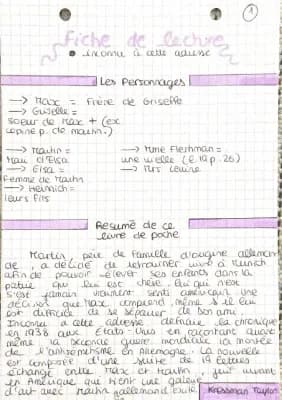 1
Fiche de lecture
• inconnu à cette adresse
Les Personnages
→ Max = Frère de Griselle
→ Griselle =
soeur de Max + (ex
copine p. de Martin.)
→ Martin =
Mari d'Elsa
→ Elsa =
Femme de Martin
→ Heinrich =
leurs fils
→ Mme Fleshman =
une vielle (l.12 p.26)
→ Mrs Levine
Résumé de ce
livre de poche
Martin, père de famille d'origine alleman
de, a décidé de retourner vivre à Munich
afin de pouvoir élever ses enfants dans la
patrie qui lui est chère. Lui qui n'est
s'est jamais vraiment senti américain. Une
décision que Max comprend, même s'il lui
est difficile de se séparer de son ami.
Inconnu a cette adresse défraie la chronique
en 1938 aux États-Unis en racontant avant
même la seconde guerre mondiale la montée
de l'antisémitisme en Allemagne. La nouvelle
est composée d'une suite de 19 lettres
échangé entre Max et Martin, juif vivant
en Amérique qui tient une galerie
d'art avec Martin allemand exilé.
Kressman Taylor